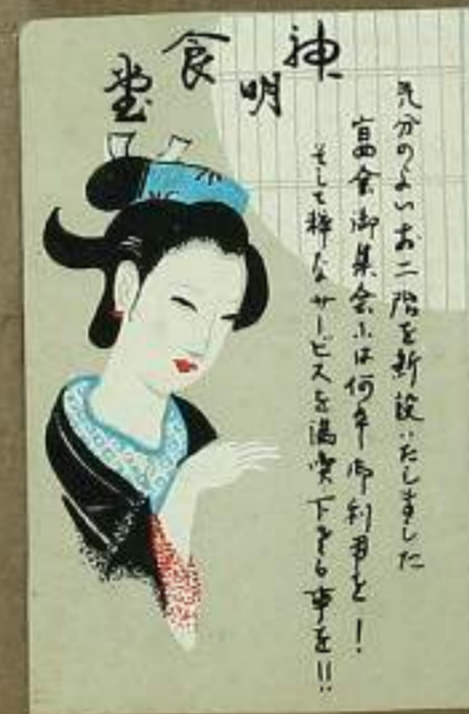 神明食堂
気分のよいお二階を新設いたしました
宴会御集会には何卒御利用を！
そして粋なサービスを満喫下さる事を!!